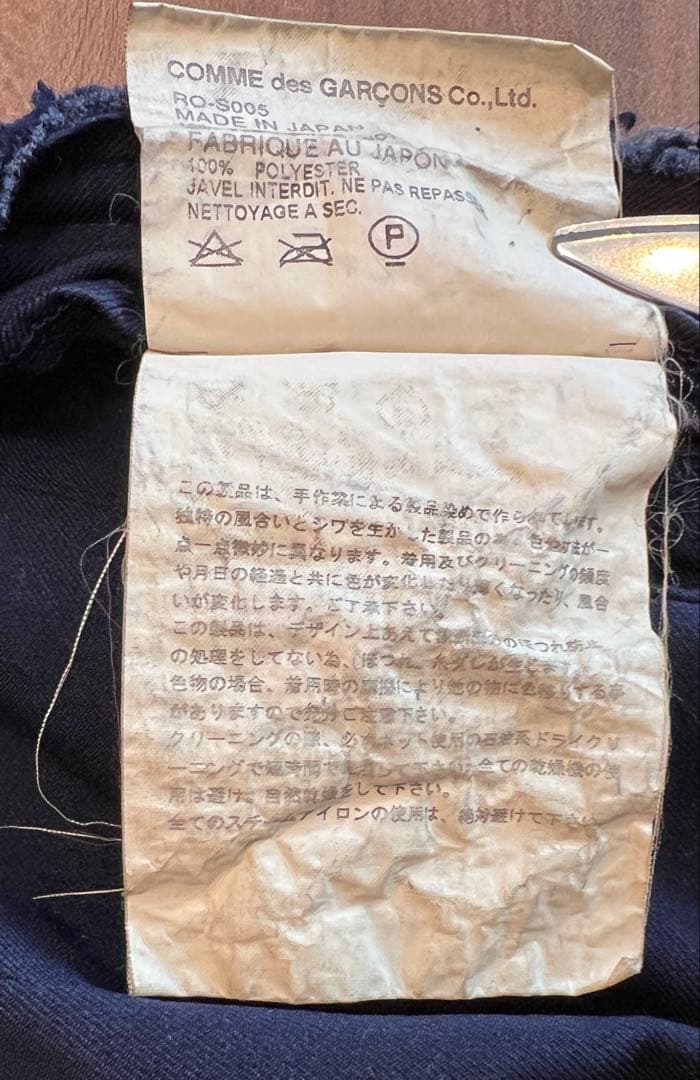 COMME des GARÇONS Co.,Ltd.
RO-S005
MADE IN JAPAN
FABRIQUE AU JAPON
100% POLYESTER
JAVEL INTERDIT. NE PAS REPASSE
NETTOYAGE A SEC.
P
この製品は、手作業による製品染めで作られています。
独特の風合いとシワを生かした製品の 色 が一
点一点微妙に異なります。着用及びクリーニングの頻度
や月日の経過と共に色が変化したり薄くなったり、風合
いが変化します。ご了承下さい。
この製品は、デザイン上あえて のほつれ防止
の処理をしてない為、ほつれ、糸 が生じます
色物の場合、着用時の摩擦により他の物に色移りする事
がありますので充分ご注意下さい。
クリーニングの際、必ずネット使用の石油系ドライクリ
ーニングで短時間で して下さい。全ての乾燥機の使
用は避け、自然乾燥をして下さい。
全てのスチームアイロンの使用は、絶対避けて下さい